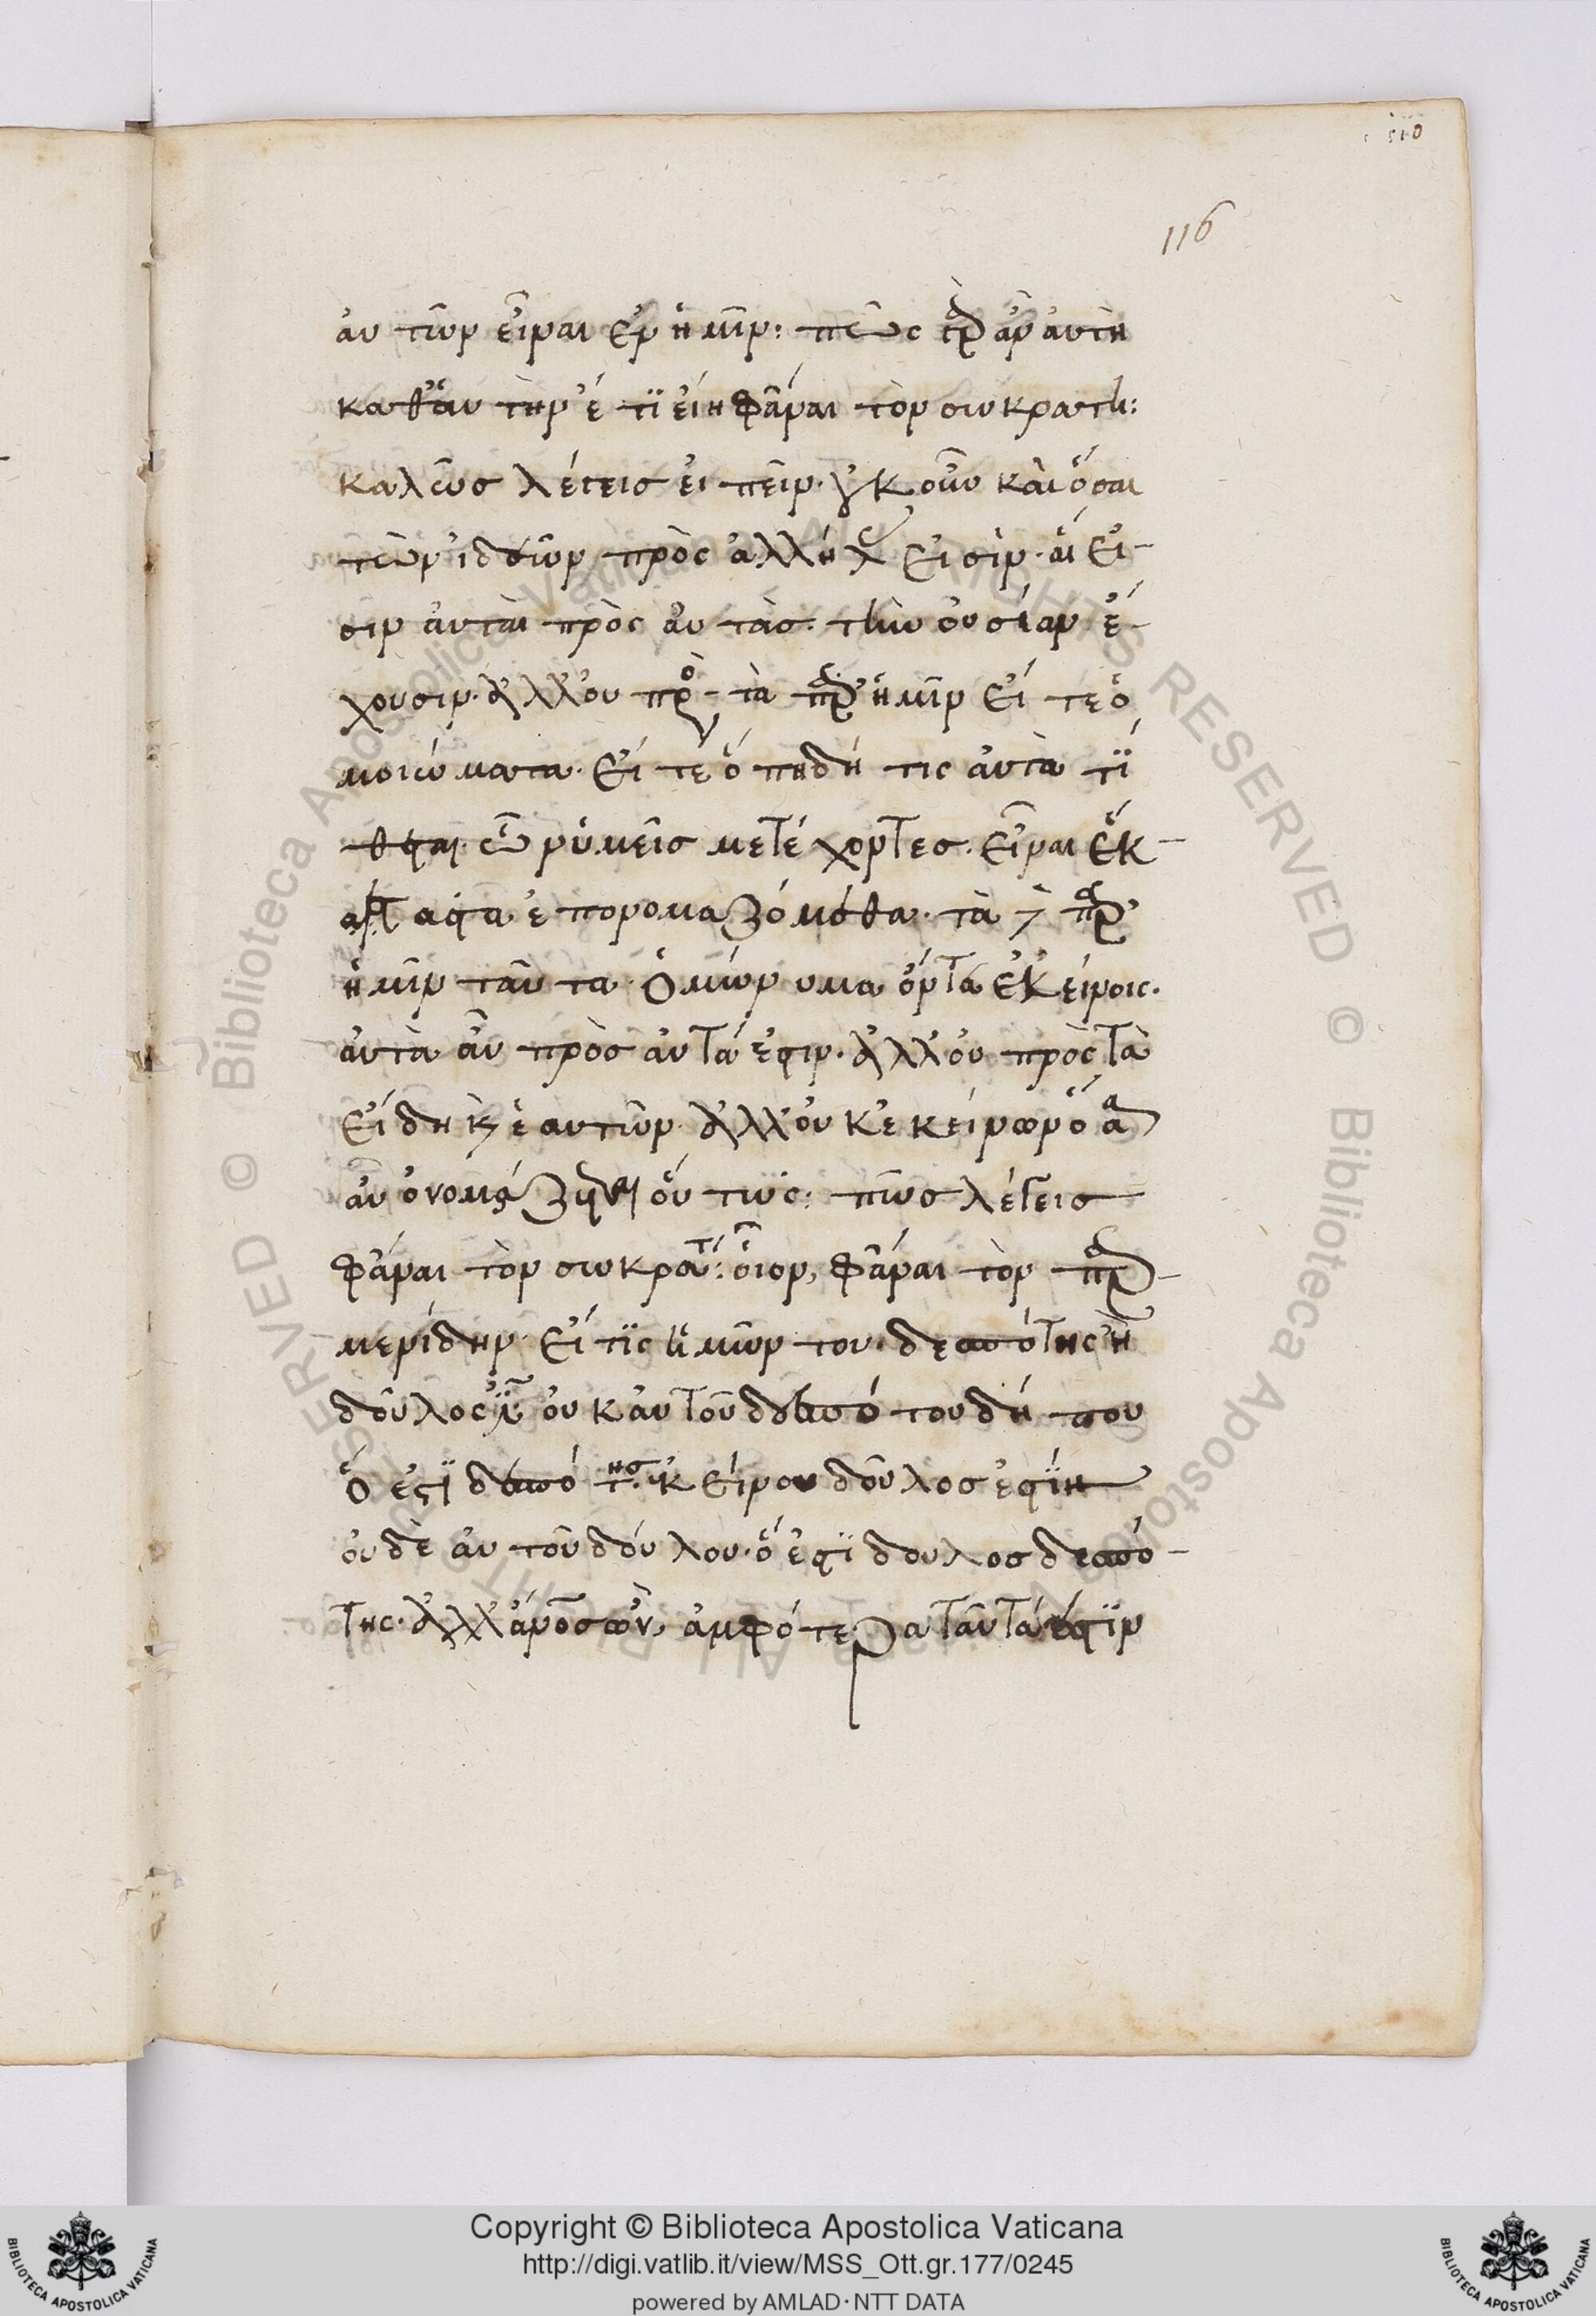 110
116
αὐτῶν εἶναι ἐν ἡμῖν: πῶς γὰρ ἂν αὐτὴ
καθ' αὑτὴν ἔτι εἴη φάναι τὸν σωκράτη:
καλῶς λέγεις εἰπεῖν· οὐκοῦν καὶ ὅσαι
τῶν ἰδεῶν πρὸς ἀλλήλας εἰσὶν· αἵ εἰ-
σιν αὐταὶ πρὸς αὑτὰς τὴν οὐσίαν ἔ-
χουσιν· ἀλλ' οὐ πρὸς τὰ παρ' ἡμῖν εἴτε ὁ
μοιώματα· εἴτε ὅπη δή τις αὐτὰ τί
θεται· ὧν ἡμεῖς μετέχοντες· εἶναι ἕκ-
αστα ἐπονομαζόμεθα· τὰ δὲ παρ'
ἡμῖν ταῦτα ὁμώνυμα ὄντα ἐκείνοις·
αὐτὰ αὖ πρὸς αὑτά ἐστιν· ἀλλ' οὐ πρὸς τὰ
εἴδη καὶ ἑαυτῶν ἀλλ' οὐκ ἐκείνων ὅσα
αὖ ὀνομάζεται οὕτως: πῶς λέγεις
φάναι τὸν σωκράτη: οἷον, φάναι τὸν παρ-
μενίδην· εἴ τις ἡμῶν του δεσπότης ἢ
δοῦλός ἐστιν οὐκ αὐτοῦ δεσπότου δή που
ὅ ἐστι δεσπότης· ἐκείνου δοῦλος ἐστὶν
οὐδὲ αὐτοῦ δούλου· ὅ ἐστι δουλος δεσπό-
της· ἀλλ' ἄνθρωπος ὢν, ἀμφότερα ταῦτά ἐστιν
Copyright © Biblioteca Apostolica Vaticana
http://digi.vatlib.it/view/MSS_Ott.gr.177/0245
powered by AMLAD·NTT DATA
BIBLIOTECA APOSTOLICA VATICANA
BIBLIOTECA APOSTOLICA VATICANA